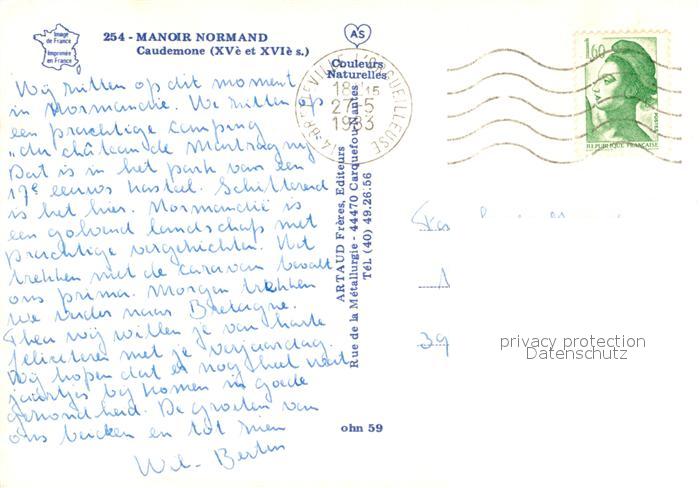 Image
de France
Imprimée
en France
254 - MANOIR NORMAND
Caudemone (XVè et XVIè s.)
Wij zitten op dit moment
in Normandie. We zitten op
een prachtige camping
"du château de Martragny
Dat is in het park van een
17e eeuws kasteel. Schitterend
is het hier. Normandië is
een golvend landschap met
prachtige vergezichten. Het
trekken met de caravan bevalt
ons prima. Morgen trekken
we verder naar Bretagne.
Theu wij willen je van harte
feliciteren met je verjaardag.
Wij hopen dat er nog heel wat
jaartjes bij komen in goede
gezondheid. De groeten van
ons beiden en tot ziens
Wil - Berten
AS
Couleurs
Naturelles
ARTAUD Frères, Editeurs
Rue de la Métallurgie - 44470 Carquefou-Nantes
Tél. (40) 49.26.56
ohn 59
14-BRETTEVILLE-L'ORGUEILLEUSE
18 15
27-5
1983
1,60
LA POSTE
REPUBLIQUE FRANÇAISE
39
privacy protection
Datenschutz